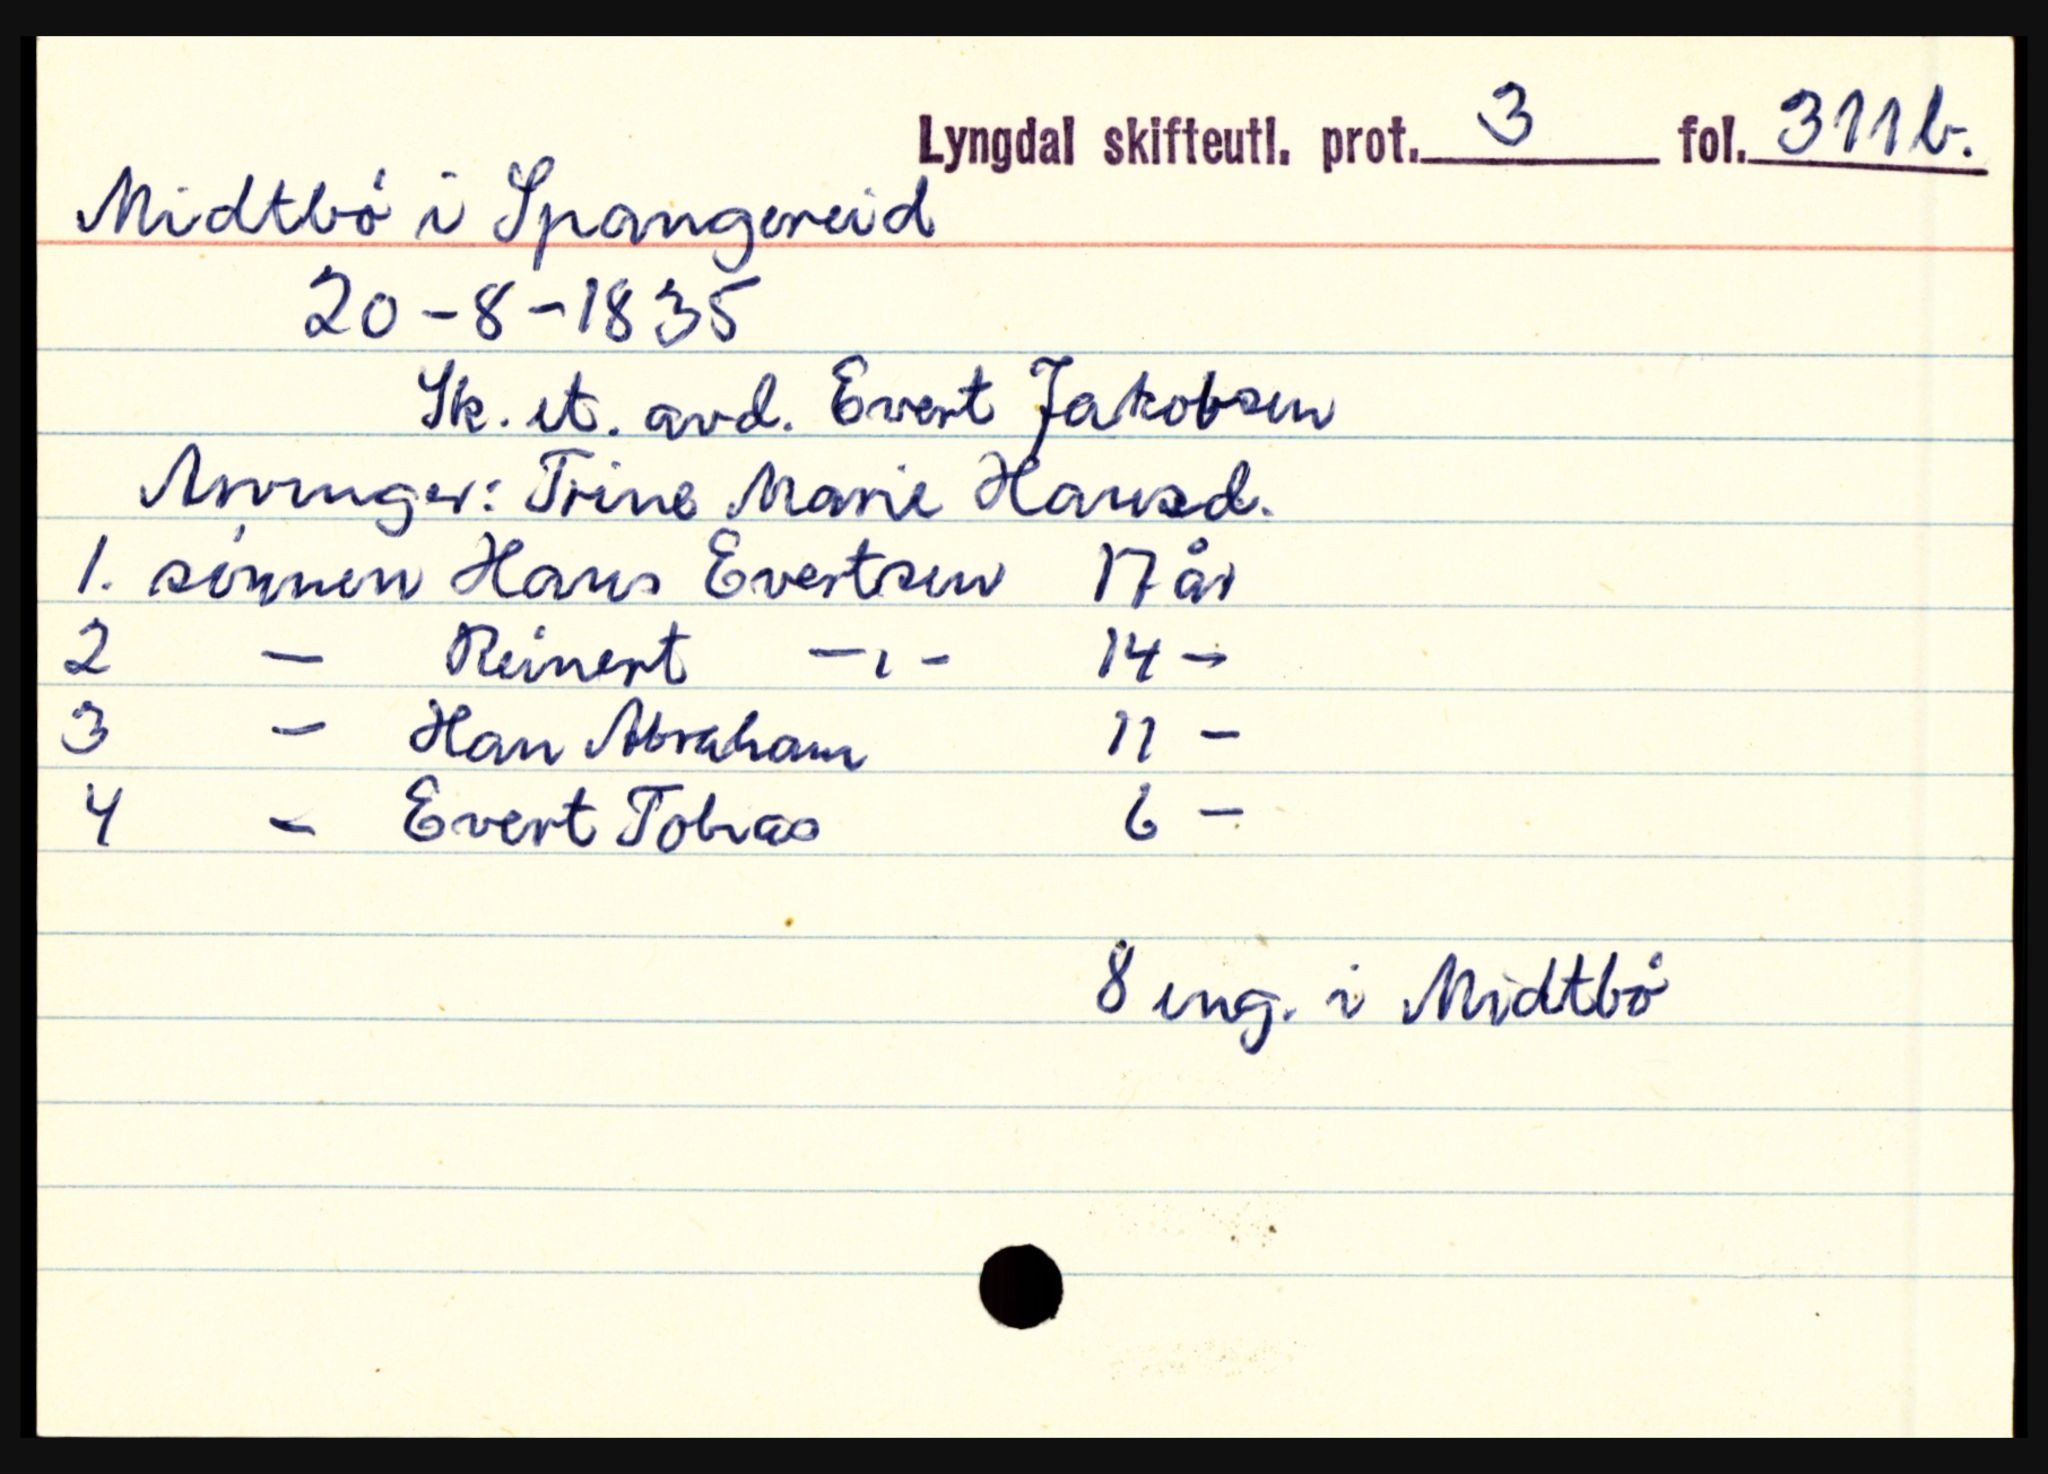 Lyngdal skifteutl. prot. 3 fol. 311b.
Midtbø i Spangereid
20-8-1835
Sk. et. avd. Evert Jakobsen
Arvinger: Trine Marie Hansd.
1. sønnen Hans Evertsen 17 år
2 - Reinert -,- 14 -
3 - Han Abraham 11 -
4 - Evert Tobias 6 -
8 eng. i Midtbø